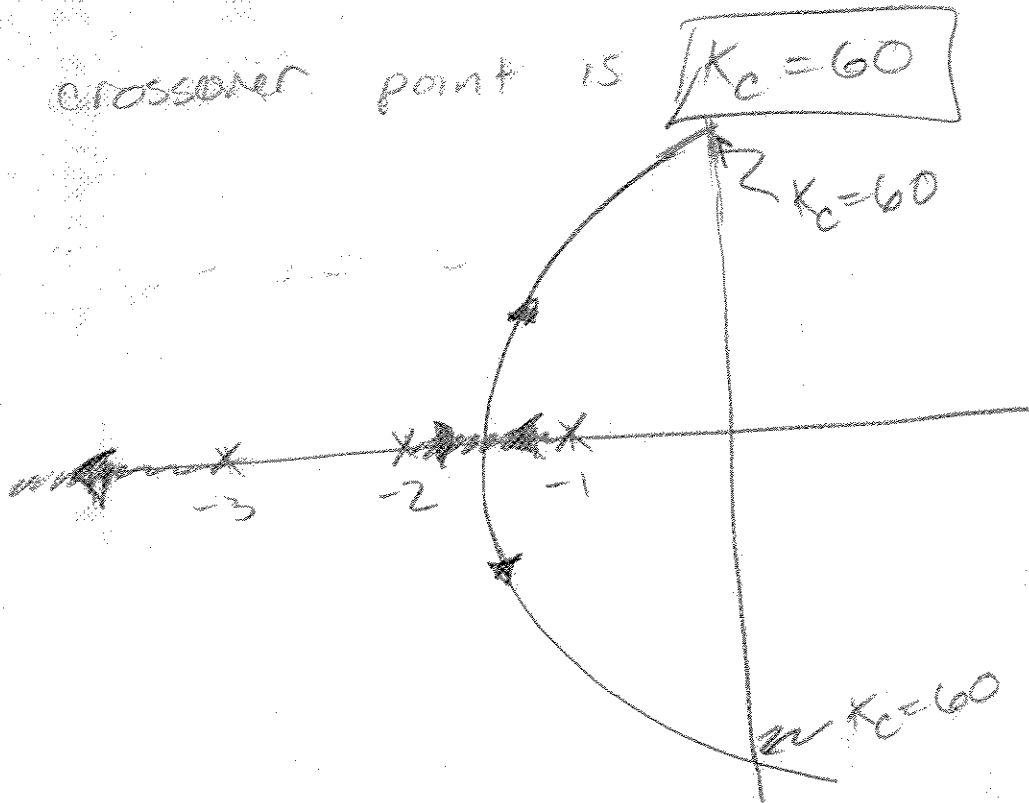 crossover point is K_c = 60
K_c = 60
-3
-2
-1
K_c = 60